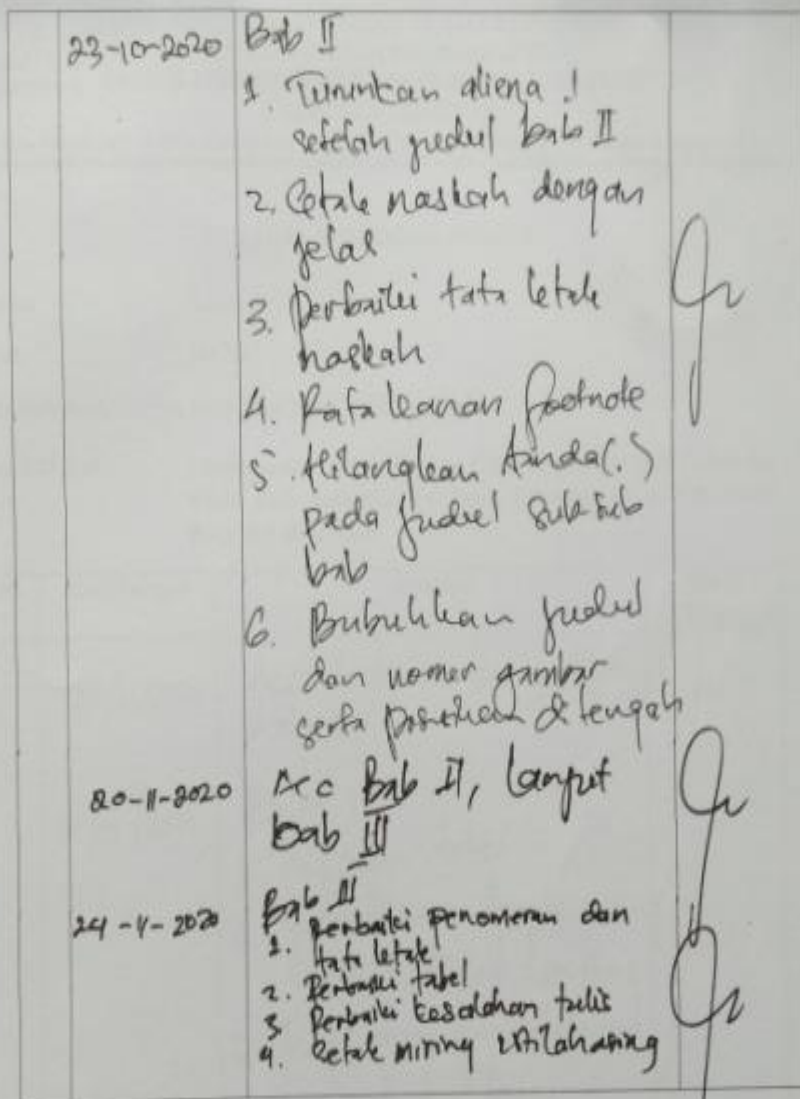 23-10-2020 Bab II
1. Turunkan aliena !
setelah judul bab II
2. Cetak naskah dengan
jelas
3. Perbaiki tata letak
naskah
4. Rata kanan footnote
5. Hilangkan tanda (.)
pada judul sub-sub
bab
6. Bubuhkan judul
dan nomer gambar
serta posisikan di tengah
20-11-2020 Acc Bab II, lanjut
bab III
24-11-2020 Bab III
1. Perbaiki penomeran dan
tata letak
2. Perbaiki tabel
3 Perbaiki kesalahan tulis
4. Cetak miring istilah asing